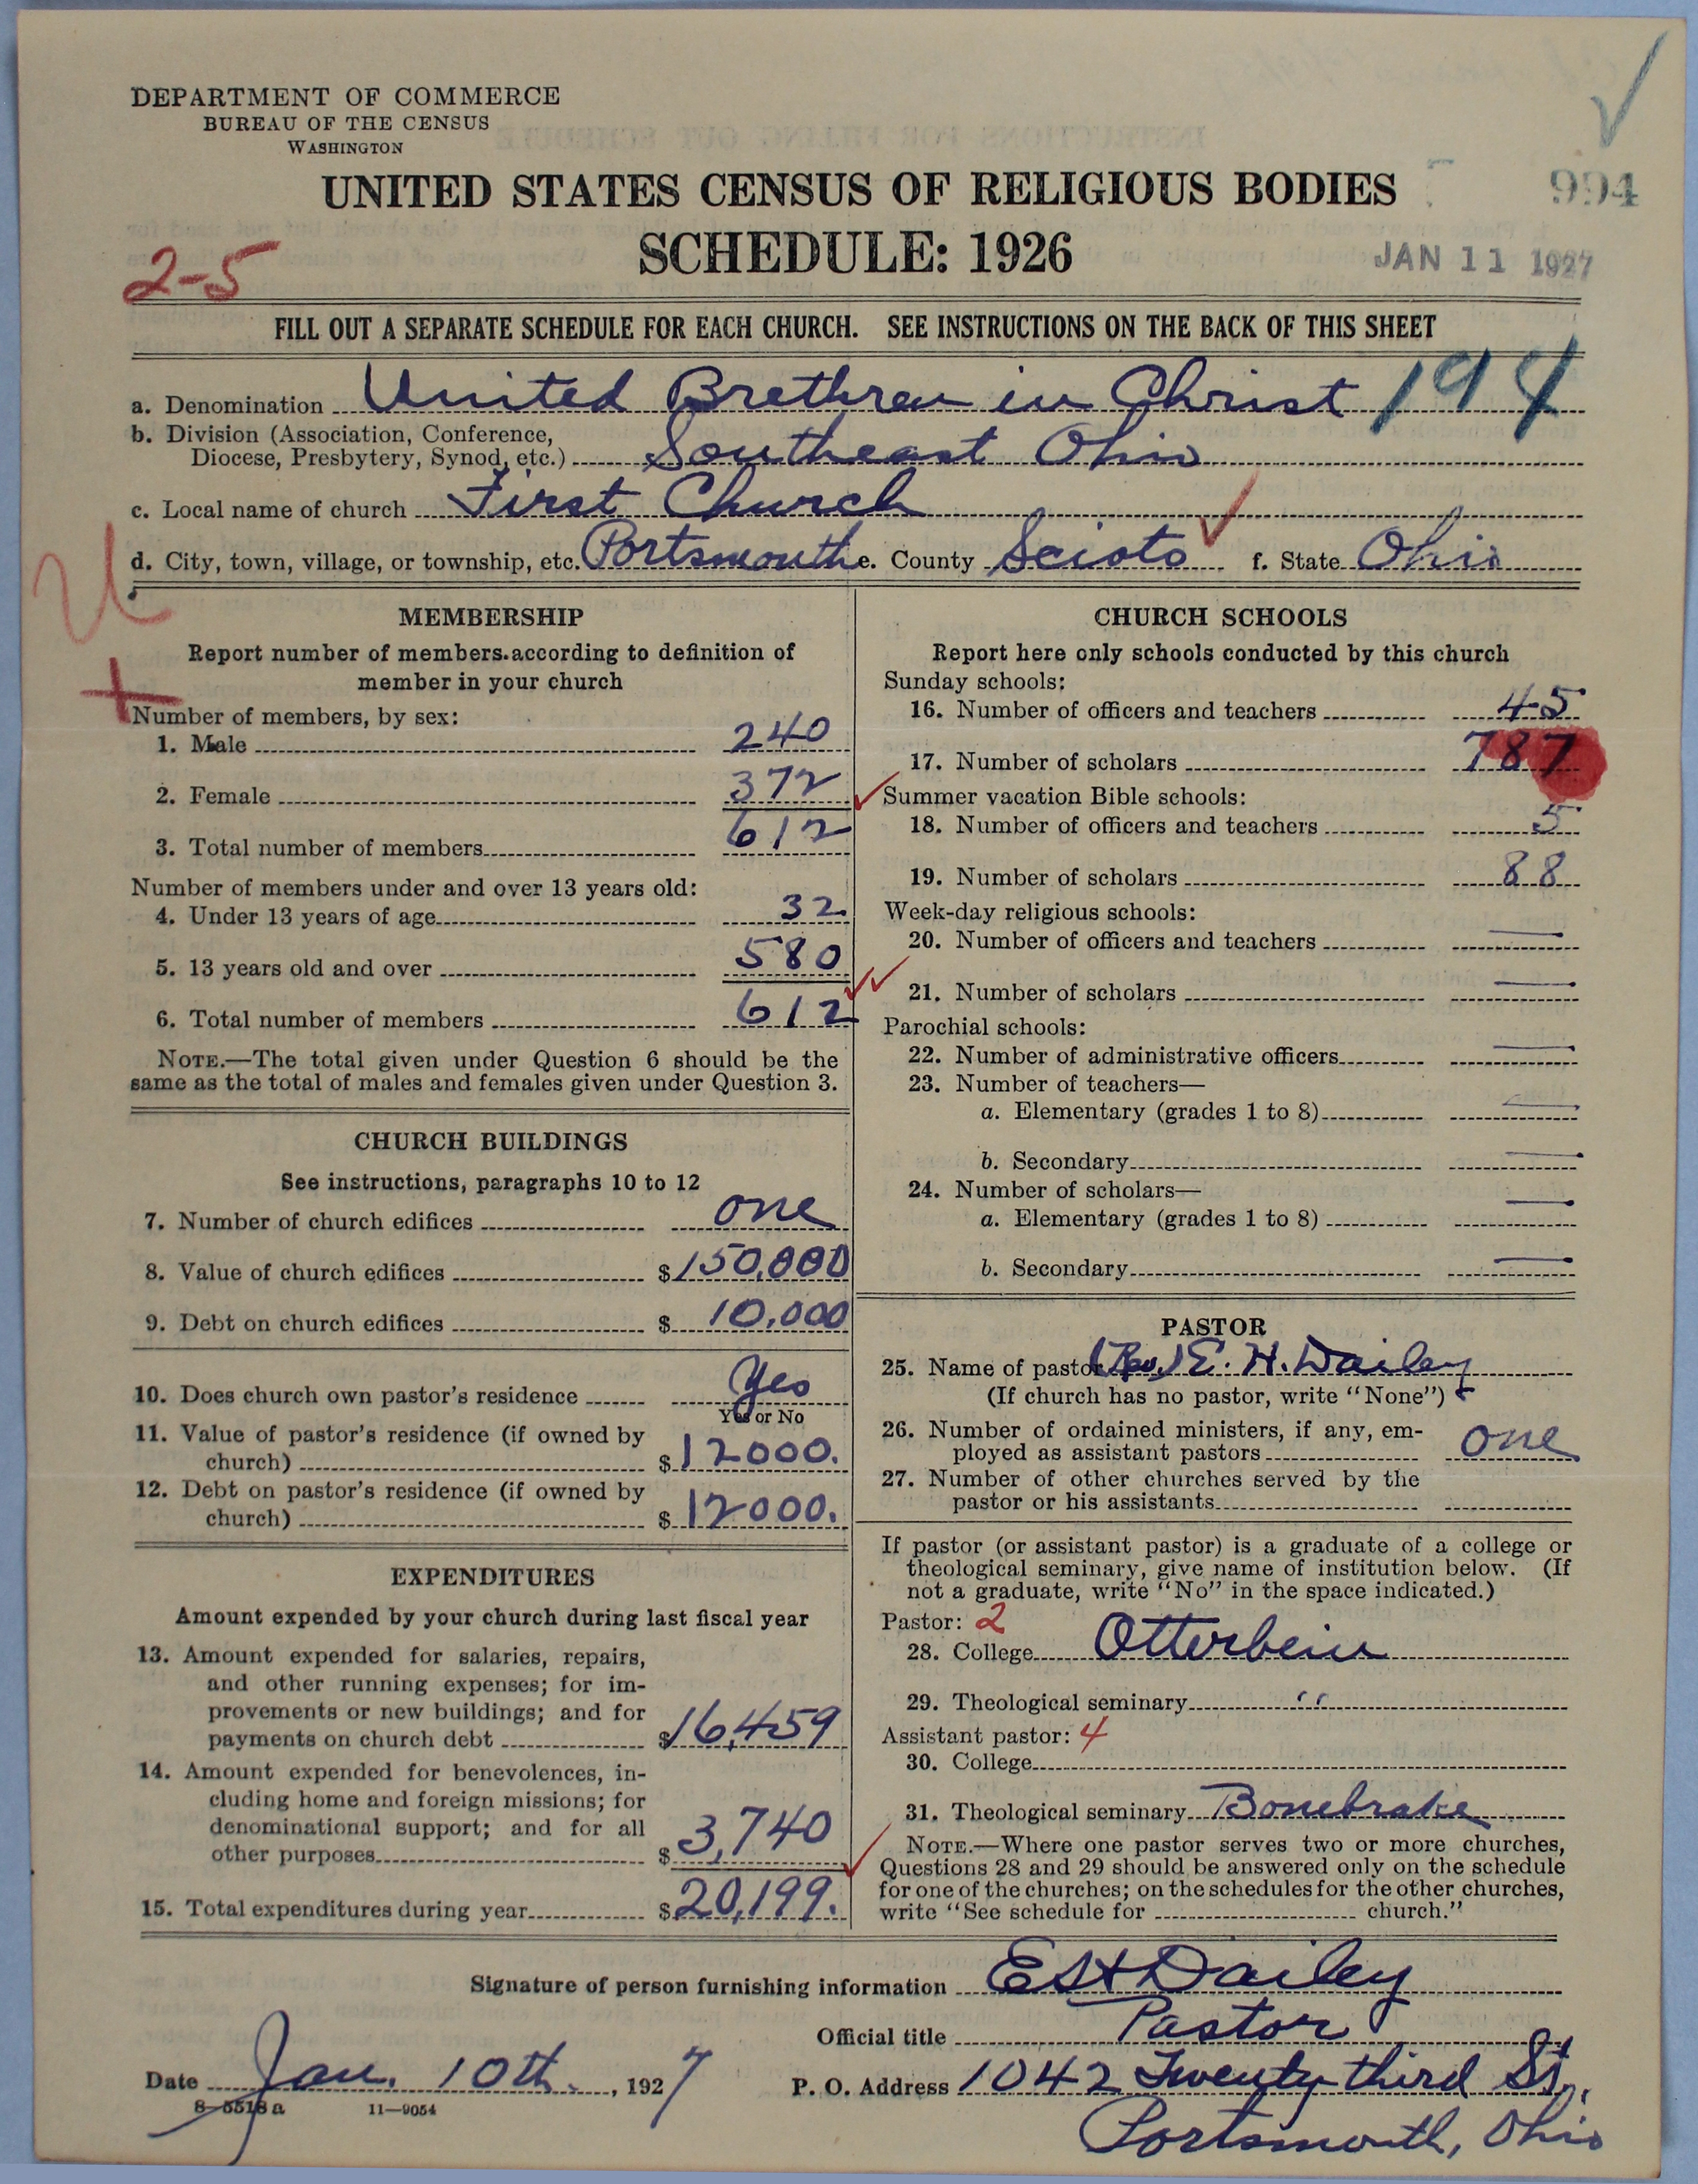 DEPARTMENT OF COMMERCE
BUREAU OF THE CENSUS
WASHINGTON
UNITED STATES CENSUS OF RELIGIOUS BODIES
994
SCHEDULE: 1926
JAN 11 1927
2-5
FILL OUT A SEPARATE SCHEDULE FOR EACH CHURCH. SEE INSTRUCTIONS ON THE BACK OF THIS SHEET
a. Denomination United Brethren in Christ 194
b. Division (Association, Conference,
Diocese, Presbytery, Synod, etc.) Southeast Ohio
c. Local name of church First Church
d. City, town, village, or township, etc. Portsmouth e. County Scioto f. State Ohio
U
MEMBERSHIP
Report number of members according to definition of
member in your church
Number of members, by sex:
1. Male 240
2. Female 372
3. Total number of members 612
Number of members under and over 13 years old:
4. Under 13 years of age 32
5. 13 years old and over 580
6. Total number of members 612
NOTE.—The total given under Question 6 should be the
same as the total of males and females given under Question 3.
CHURCH BUILDINGS
See instructions, paragraphs 10 to 12
7. Number of church edifices one
8. Value of church edifices $150,000
9. Debt on church edifices $10,000
10. Does church own pastor's residence Yes
Yes or No
11. Value of pastor's residence (if owned by
church) $12000.
12. Debt on pastor's residence (if owned by
church) $12000.
EXPENDITURES
Amount expended by your church during last fiscal year
13. Amount expended for salaries, repairs,
and other running expenses; for im-
provements or new buildings; and for
payments on church debt $16,459
14. Amount expended for benevolences, in-
cluding home and foreign missions; for
denominational support; and for all
other purposes $3,740
15. Total expenditures during year $20,199.
CHURCH SCHOOLS
Report here only schools conducted by this church
Sunday schools:
16. Number of officers and teachers 45
17. Number of scholars 787
Summer vacation Bible schools:
18. Number of officers and teachers 5
19. Number of scholars 88
Week-day religious schools:
20. Number of officers and teachers —
21. Number of scholars —
Parochial schools:
22. Number of administrative officers —
23. Number of teachers—
a. Elementary (grades 1 to 8) —
b. Secondary —
24. Number of scholars—
a. Elementary (grades 1 to 8) —
b. Secondary —
PASTOR
25. Name of pastor (Rev.) E. H. Dailey
(If church has no pastor, write "None")
26. Number of ordained ministers, if any, em-
ployed as assistant pastors one
27. Number of other churches served by the
pastor or his assistants
If pastor (or assistant pastor) is a graduate of a college or
theological seminary, give name of institution below. (If
not a graduate, write "No" in the space indicated.)
Pastor: 2
28. College Otterbein
29. Theological seminary "
Assistant pastor: 4
30. College
31. Theological seminary Bonebrake
NOTE.—Where one pastor serves two or more churches,
Questions 28 and 29 should be answered only on the schedule
for one of the churches; on the schedules for the other churches,
write "See schedule for church."
Signature of person furnishing information E H Dailey
Official title Pastor
Date Jan. 10th., 1927
P. O. Address 1042 Twenty third St.,
Portsmouth, Ohio
8-5518 a 11—9054